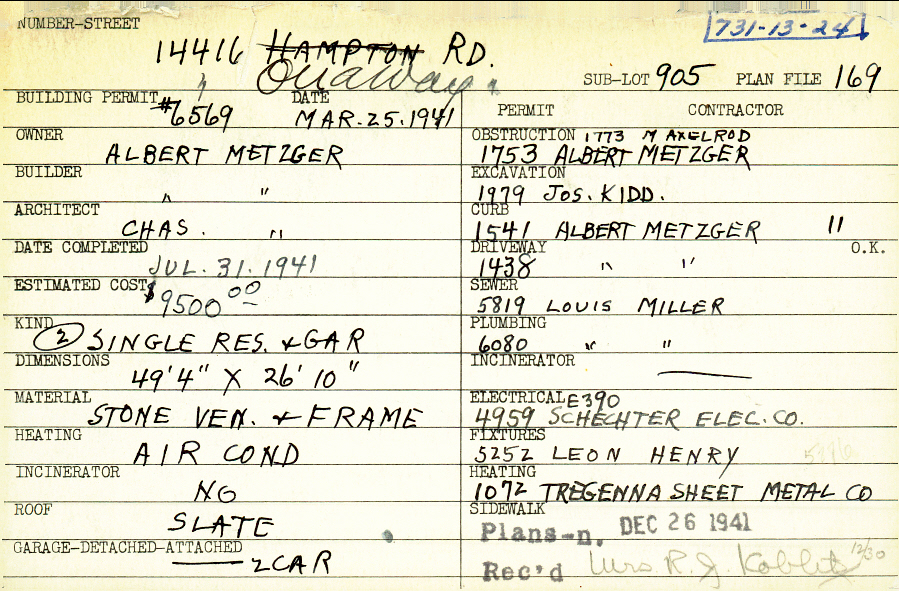 NUMBER-STREET
731-13-24
14416 HAMPTON RD.
Onaway
SUB-LOT 905 PLAN FILE 169
BUILDING PERMIT #6569 DATE MAR. 25. 1941
OWNER
ALBERT METZGER
BUILDER
" "
ARCHITECT
CHAS. "
DATE COMPLETED
JUL. 31. 1941
ESTIMATED COST
$9500 00
KIND
2 SINGLE RES. & GAR
DIMENSIONS
49'4" X 26'10"
MATERIAL
STONE VEN. & FRAME
HEATING
AIR COND
INCINERATOR
NO
ROOF
SLATE
GARAGE-DETACHED-ATTACHED
2 CAR
PERMIT CONTRACTOR
OBSTRUCTION 1773 M AXELROD
1753 ALBERT METZGER
EXCAVATION
1979 JOS. KIDD.
CURB
1541 ALBERT METZGER "
DRIVEWAY O.K.
1438 " "
SEWER
5819 LOUIS MILLER
PLUMBING
6080 " "
INCINERATOR
ELECTRICAL E390
4959 SCHECHTER ELEC. CO.
FIXTURES
5252 LEON HENRY
HEATING
1072 TREGENNA SHEET METAL CO
SIDEWALK
Plans-n. DEC 26 1941
Rec'd Mrs. R. J. 12/30